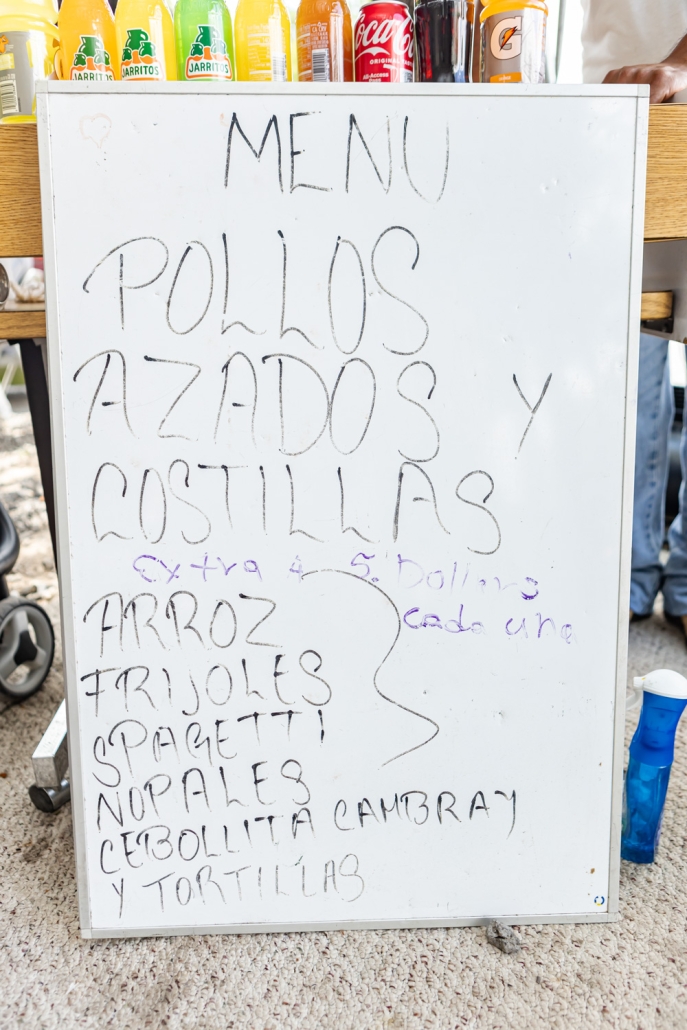 JARRITOS
JARRITOS
JARRITOS
Coca-Cola
ORIGINAL
G
MENU
POLLOS
AZADOS Y
COSTILLAS
extra a 5. Dollers
cada una
ARROZ
FRIJOLES
SPAGETTI
NOPALES
CEBOLLITA CAMBRAY
Y TORTILLAS